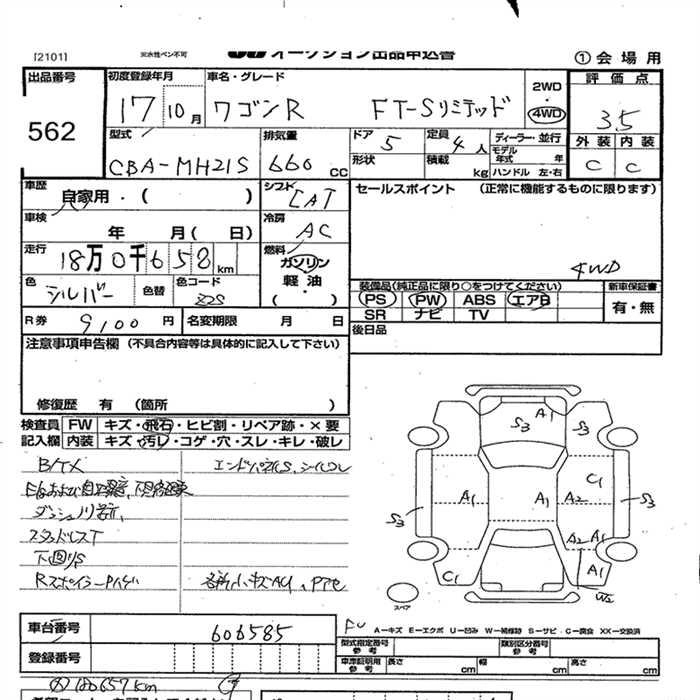 [2101] ※水性ペン不可 オークション出品申込書 ①会場用
出品番号 562
初度登録年月 17 10月
車名・グレード ワゴンR FT-Sリミテッド
2WD・4WD
評価点 3.5
外装 内装
C C
型式 CBA-MH21S
排気量 660 CC
ドア 5
形状
定員 4人
積載 kg
ディーラー・並行
モデル年式 年
ハンドル 左・右
車歴 自家用・( )
シフト CAT
セールスポイント (正常に機能するものに限ります)
車検 年 月( 日)
冷房 AC
走行 18万0千658km
燃料 ガソリン 軽油・( )
4WD
色 シルバー 色替 色コード Z2S
装備品(純正品に限り○をつけてください) 新車保証書
PS PW ABS エアB 有・無
SR ナビ TV
R券 9,100円 名変期限 月 日
後日品
注意事項申告欄 (不具合内容等は具体的に記入して下さい)
修復歴 有 (箇所 )
検査員記入欄 FW キズ・飛石・ヒビ割・リペア跡・×要
内装 キズ・汚レ・コゲ・穴・スレ・キレ・破レ
A1 S3 S3
C1
S3 A1 A1 A2 S3
A2 A1
C1 A1
W2
スペア
スタッドレスT
下回りS
A-キズ E-エクボ U-凹み W-補修跡 S-サビ C-腐食 XX-交換済
車台番号 606585
型式指定番号 参考 類別区分番号 参考
登録番号
車庫証明用 参考 長さ cm 幅 cm 高さ cm
180657km